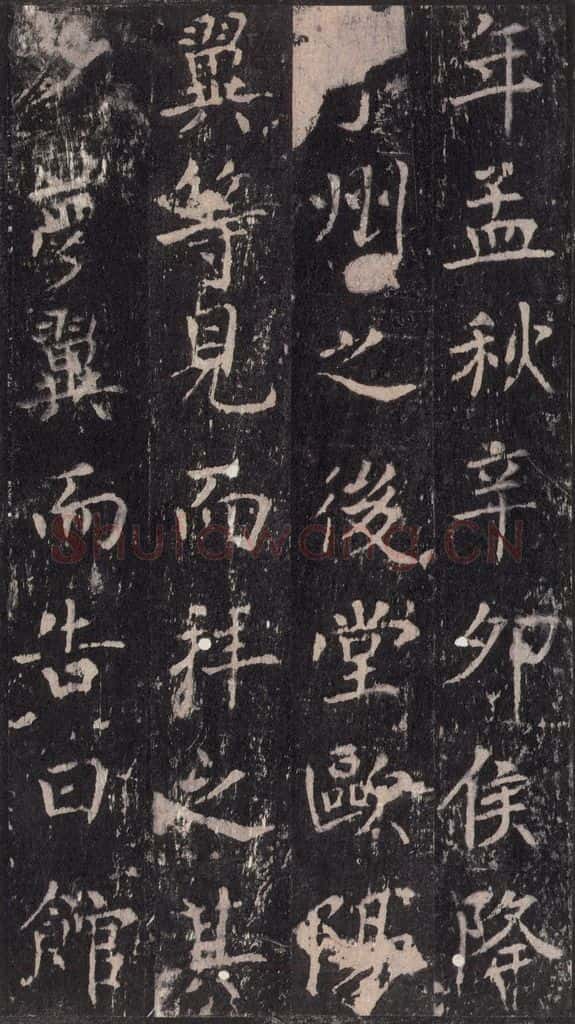 年孟秋辛卯侯降
于州之後堂歐陽
翼等見而拜之其
夕夢翼而告曰館
Shufawang.CN